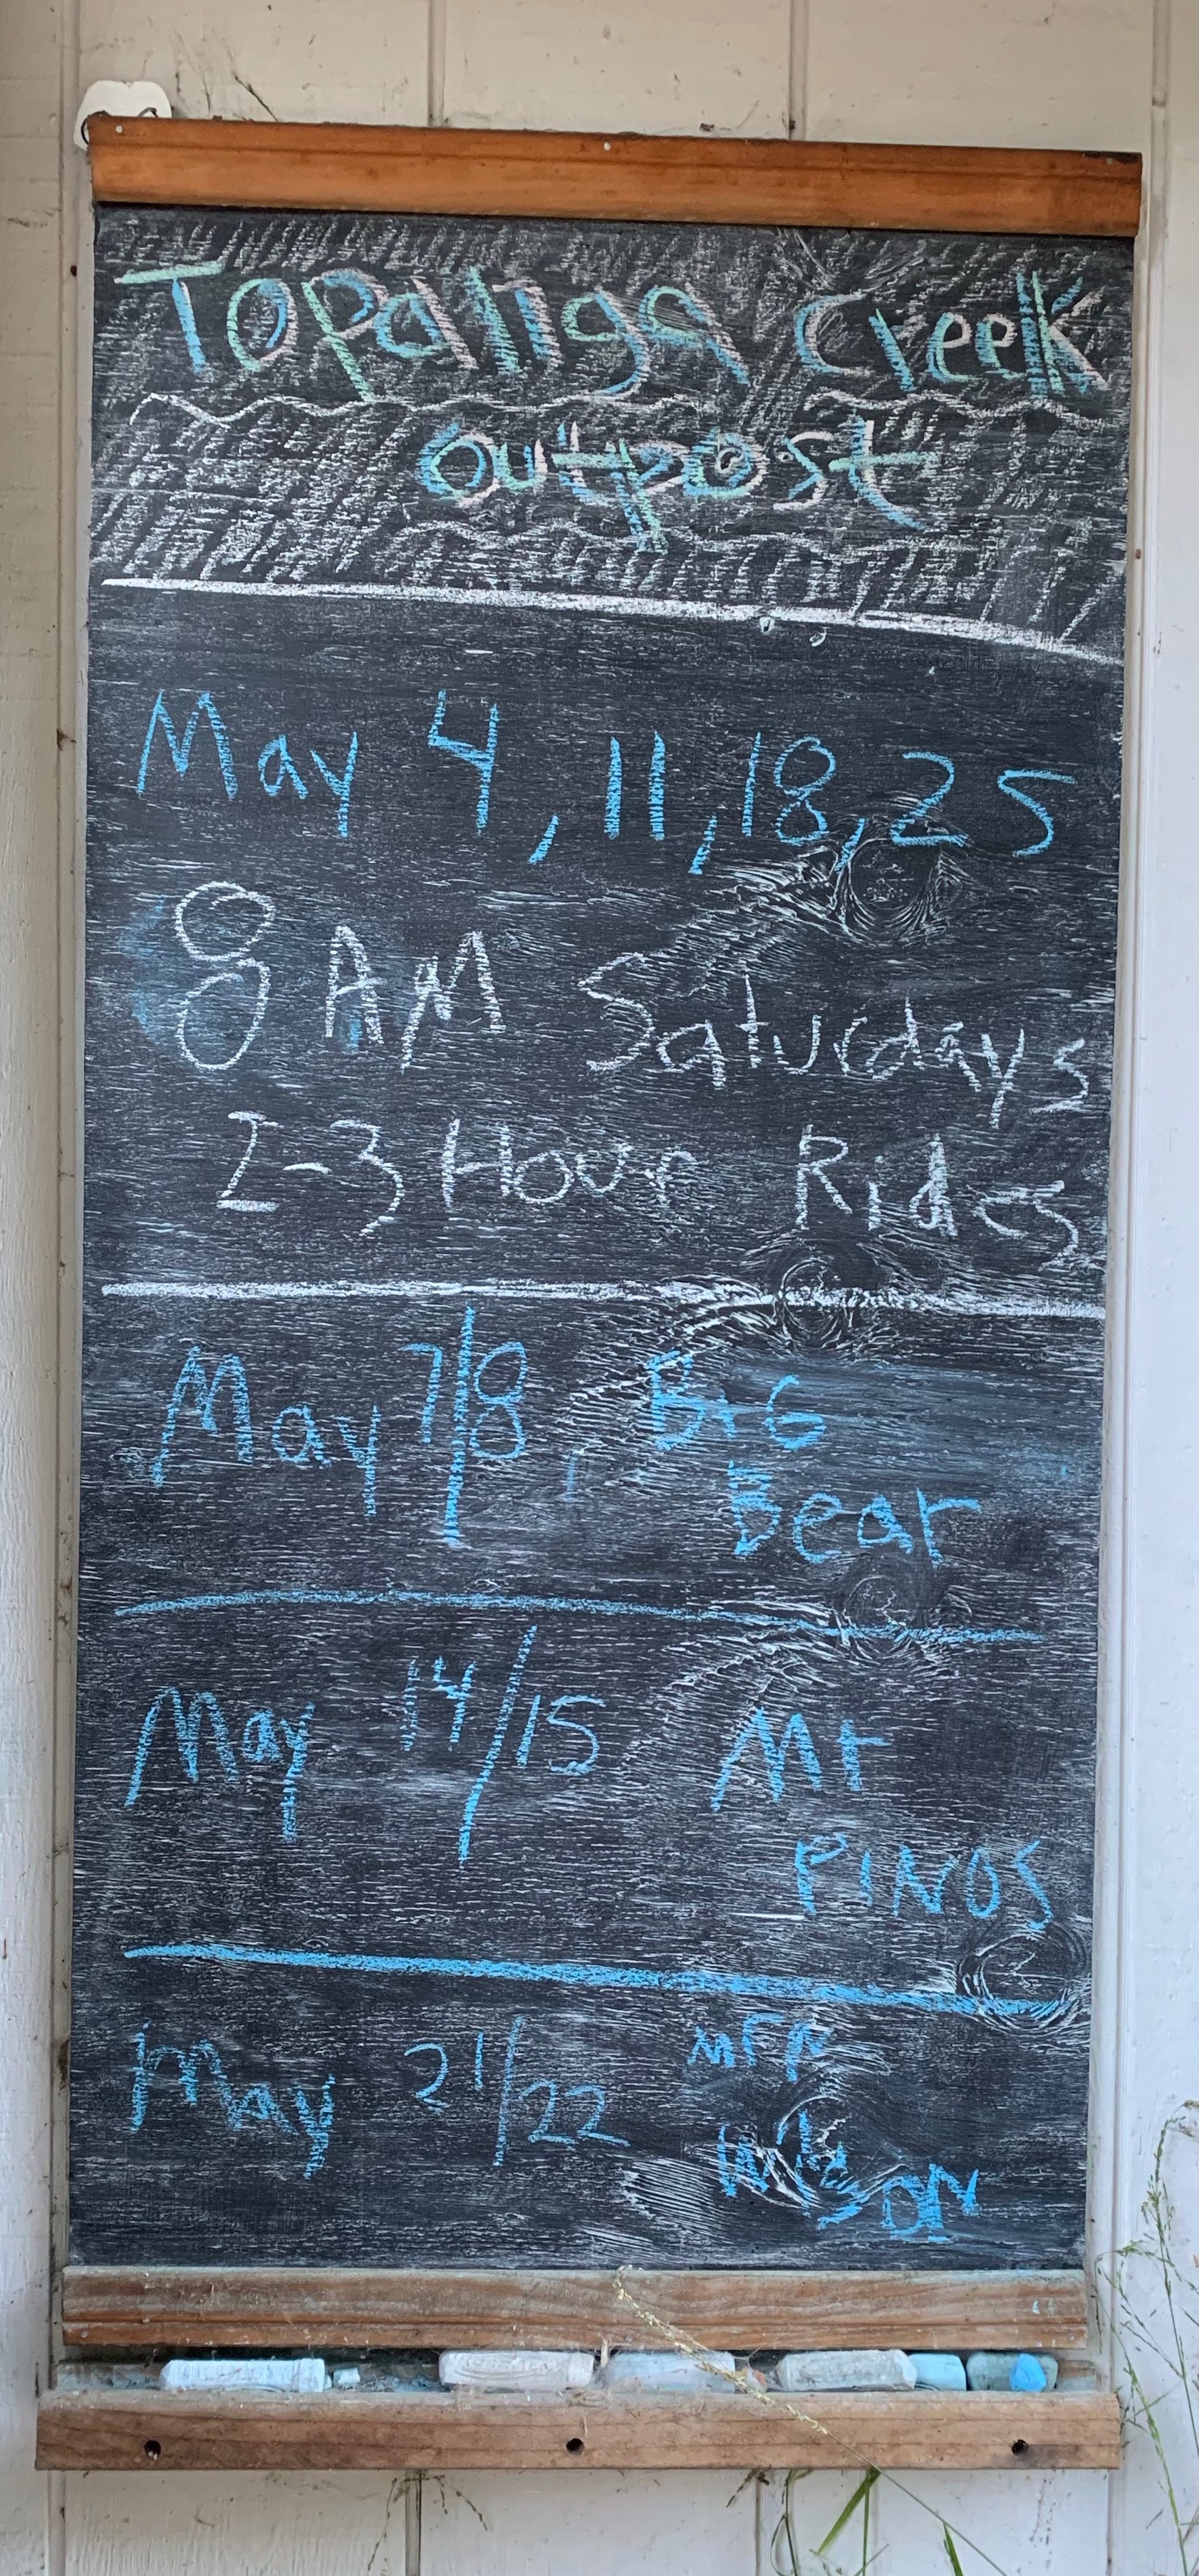 Topanga Creek
Outpost
May 4, 11, 18, 25
8 AM Saturdays
2-3 Hour Rides
May 7/8, BiG
Bear
May 14/15 Mt
PINOS
May 21/22
WilSON